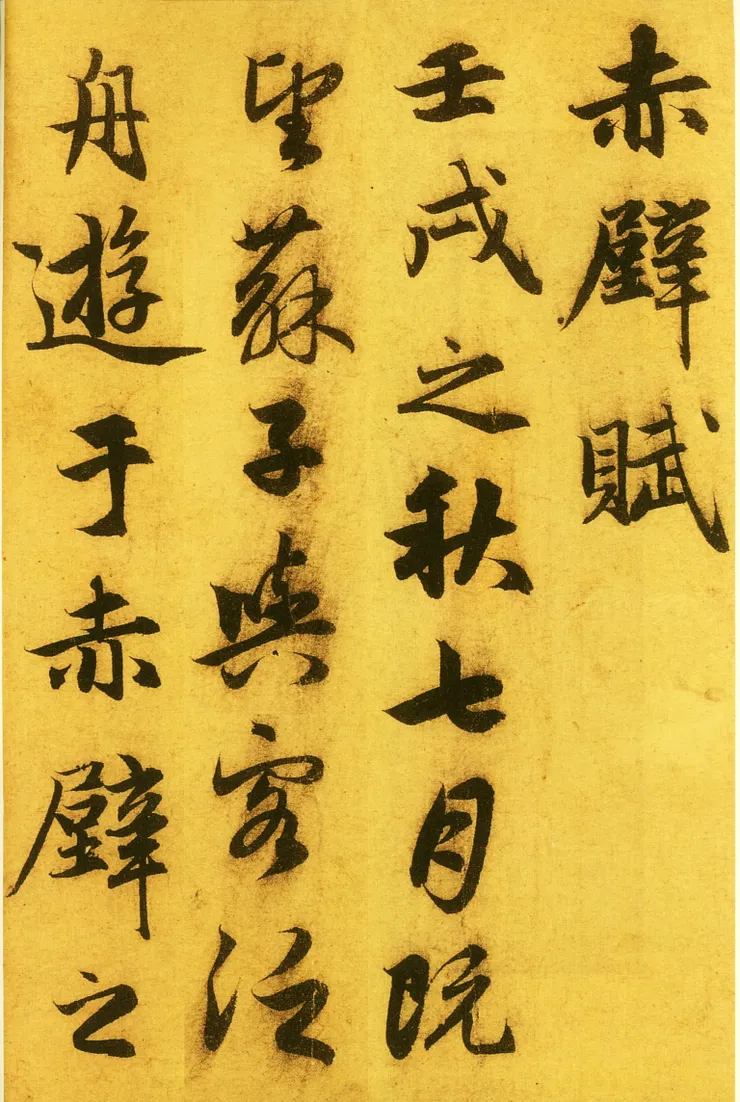 赤壁賦
壬戌之秋七月既
望蘇子與客泛
舟遊于赤壁之